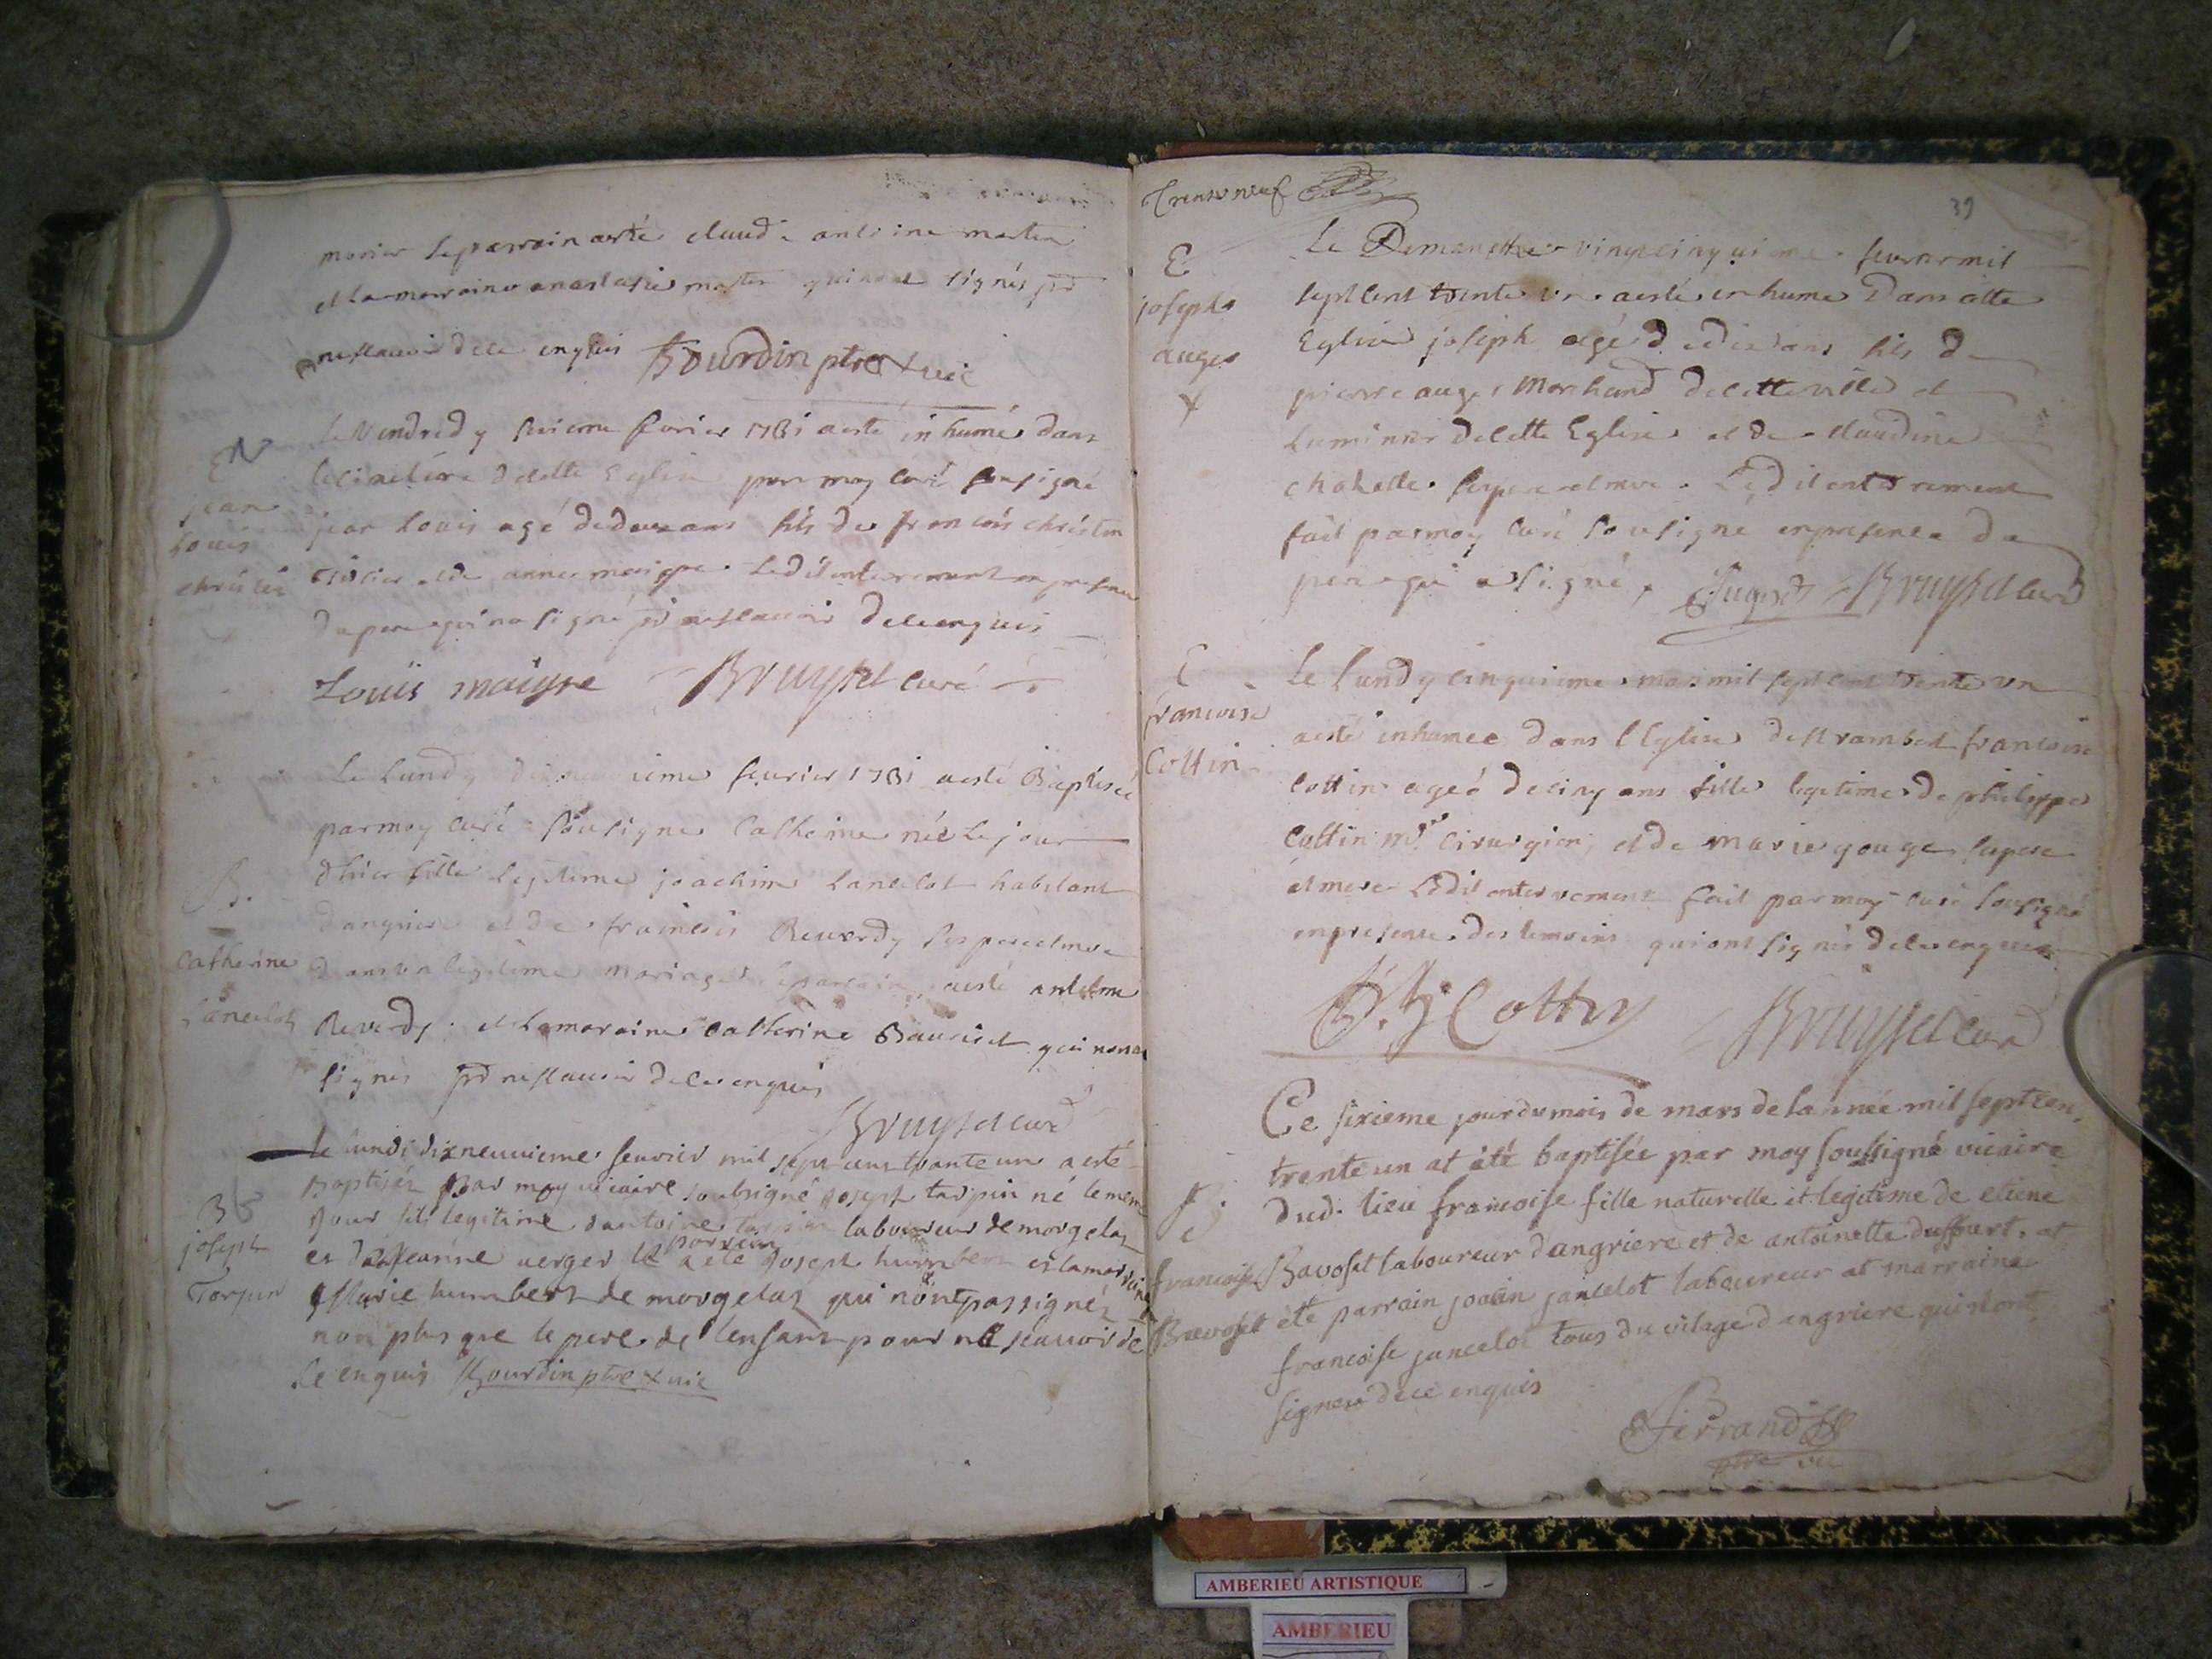 mariés le parrain aesté claude antoine martin
et la marraine anastasie martin qui nont signés pr
ne scavoir de ce enquis Bourdin ptre & vic
E
jean
Louis
christin
Le Vendredy février 1731 aesté inhumé dans
le cimetière de cette Eglise par moy curé sousigné
jean Louis agé de douze ans fils de francois christin
et de anne maigre. Ledit enterrement en presence
du pere qui na signé pr ne scavoir de ce enquis
Louis maigre Bruyset curé
B.
Catherine
Janselot
Le Lundy février 1731 aesté Baptisée
par moy curé sousigné Catherine née le jour
dhier fille legitime joachim Lancelot habitant
dangriere et de francoise Reverdy ses pere et mere
dans un legitime mariage le parrain aesté antelme
Reverdy. et la maraine catherine Bauriset qui nont
signés pr ne scavoir de ce enquis
Bruyset curé
B
joseph
Tarpin
le lundi dixneuvieme fevrier mil sept cent trante un a esté
Baptisé par moy vicaire soubsigné Joseph tarpin né le mem
jour fils legitime dantoine tarpin laboureur de morgelas
et de Jeanne verger le parrein a eté Joseph humbert et la marreine
Marie humbert de morgelas qui nont pas signés
non plus que le pere de lenfant pour ne scavoir de
ce enquis Bourdin ptre & vic
Trente neuf
39
E
joseph
auger
Le Dimanche vingt cinquieme fevrier mil
sept cent trente un aesté inhumé Dans cette
Eglise joseph agé de dix ans fils de
pierre auger Marchand de cette ville et
Luminier de cette Eglise et de claudine
chakotte. ses pere et mere. Ledit enterrement
fait par moy curé sousigné en presence du
pere qui a signé, Auger Bruyset curé
E
francoise
Cottin
Le Lundy cinquieme mars mil sept cent trente un
aesté inhumée dans l'Eglise de st rambert francoise
Cottin ageé de cinq ans fille legitime de philippe
Cottin mre cirurgien, et de marie gouge ses pere
et mere Ledit enterrement fait par moy curé sousigné
en presence des temoins qui ont signés de ce enquis
Cottin Bruyset curé
B
francoise
Bavoset
Ce sixieme jour du mois de mars de lannée mil sept cen,
trente un at été baptisée par moy soussigné vicaire
dud. lieu francoise fille naturelle et legitime de etiene
Bavoset laboureur dangriere et de antoinette duffourt, at
été parrain joacin jancelot laboureur at marraine
francoise jancelot tous du vilage dangriere qui nont
signer de ce enquis
Ferrand
ptre vic
AMBERIEU ARTISTIQUE
AMBERIEU